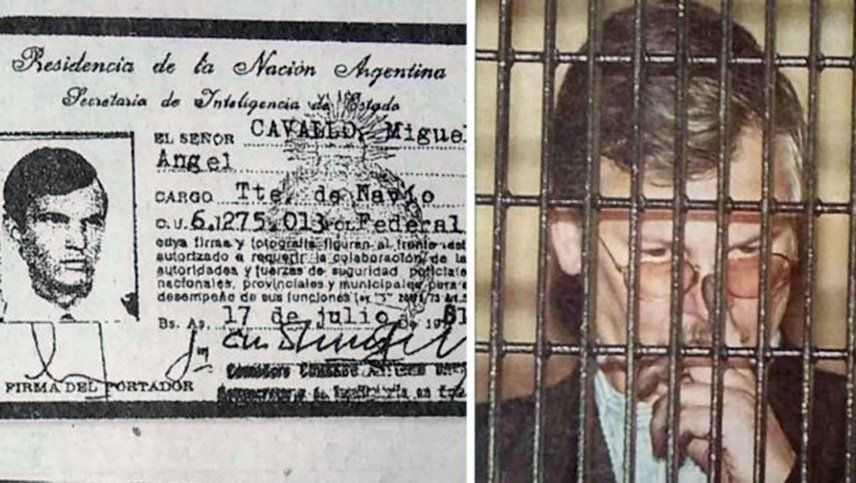 Presidencia de la Nación Argentina
Secretaria de Inteligencia de Estado
EL SEÑOR CAVALLO, Miguel
Angel
CARGO Tte. de Navío
C.U. 6.275.013 Federal
cuya firma y fotografía figuran al frente
autorizado a requerir la colaboración de la
autoridades y fuerzas de seguridad policiale
nacionales, provinciales y municipales para
desempeño de sus funciones
Bs. As. 17 de julio de 19
FIRMA DEL PORTADOR